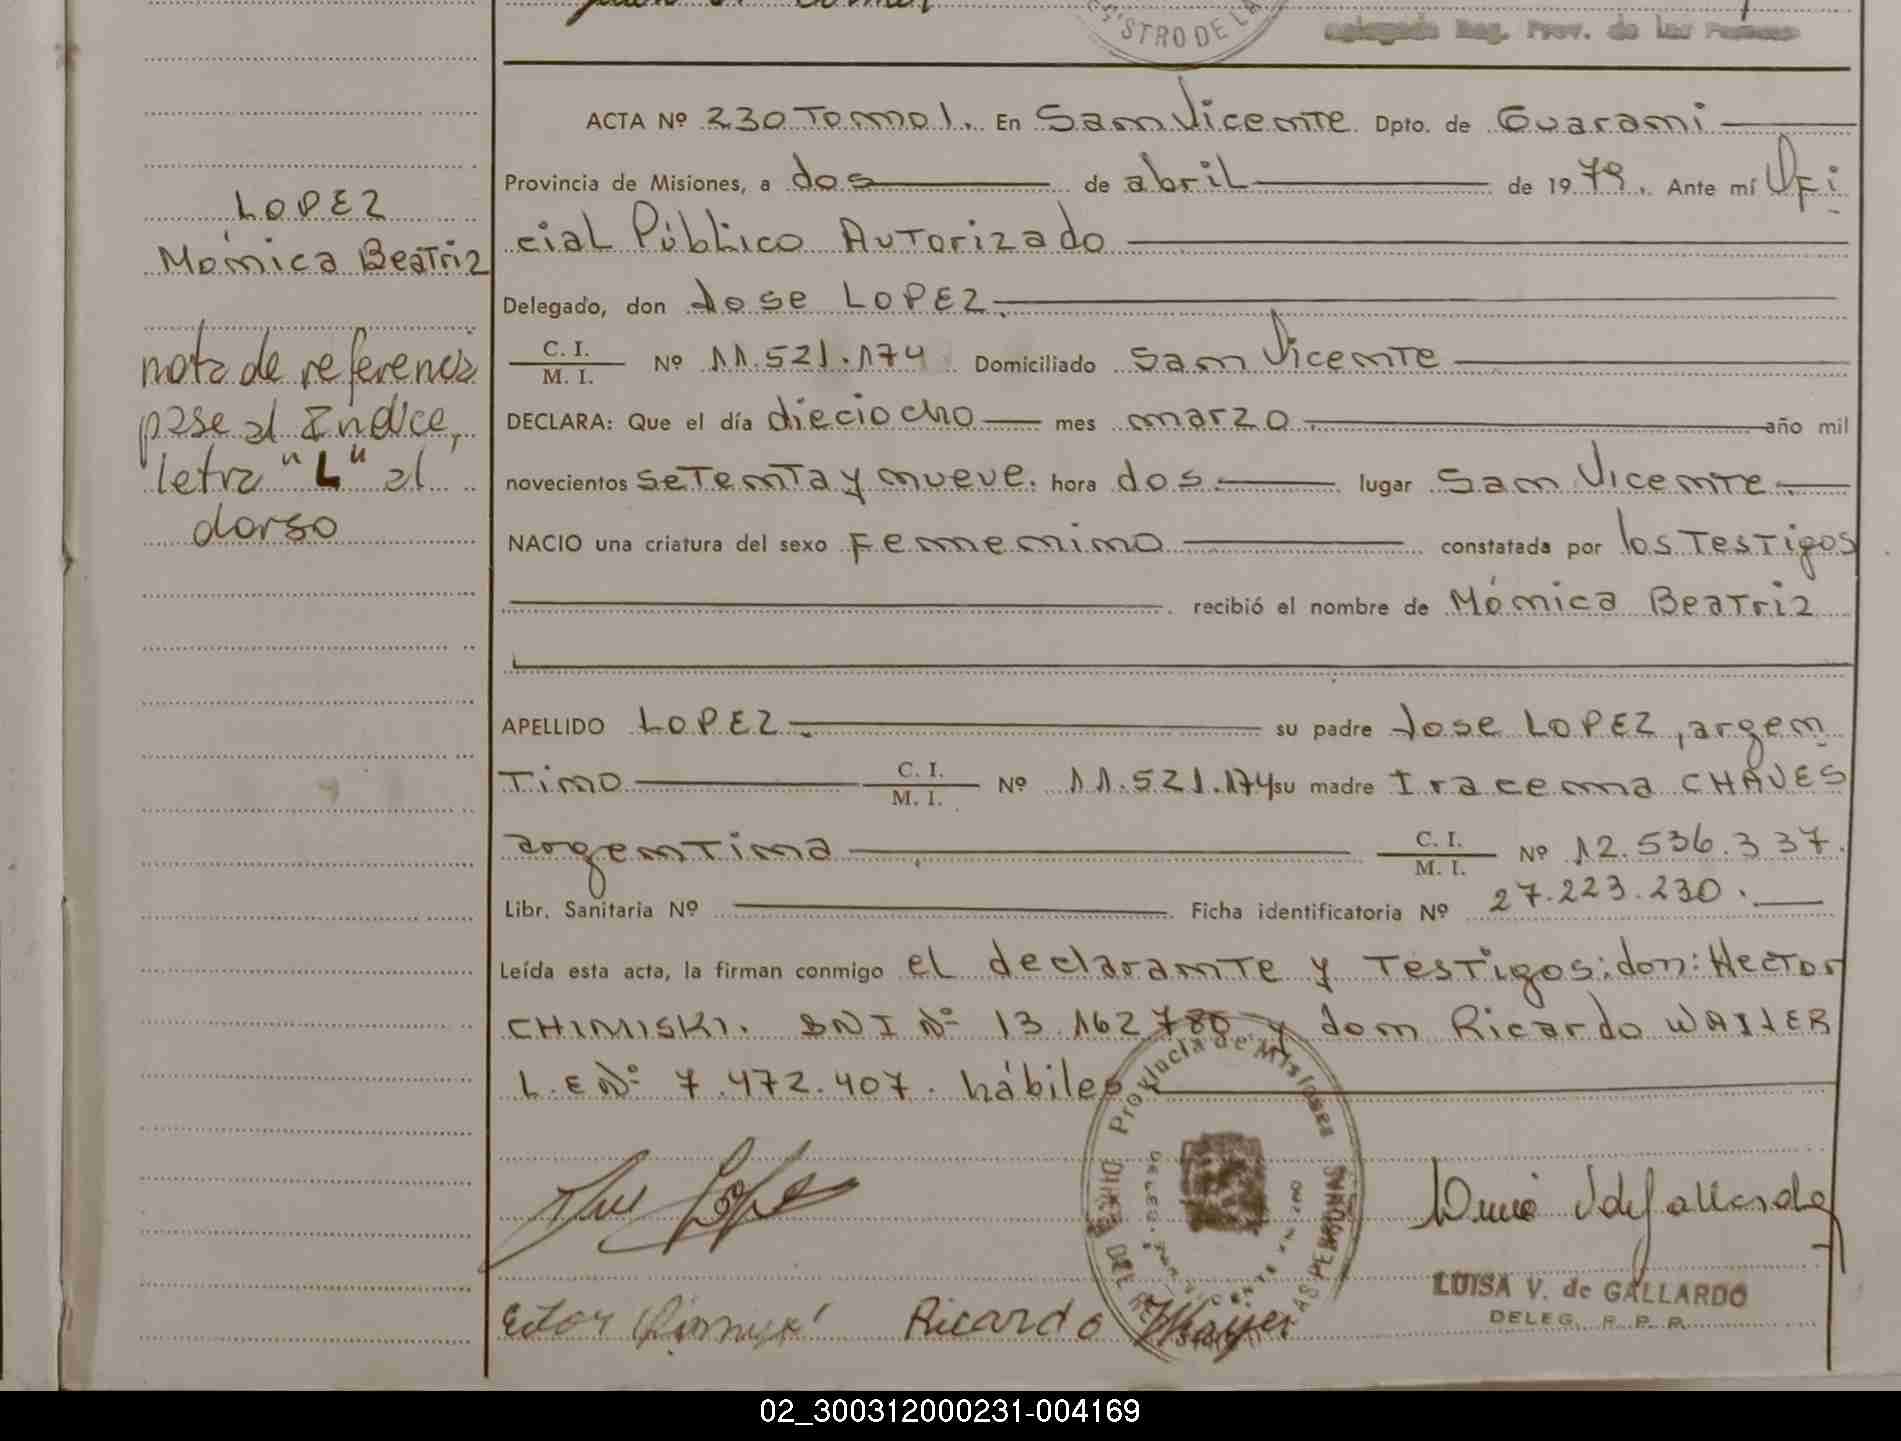 STRO DE LA
Delegado Reg. Prov. de las Personas
ACTA Nº 230 Tomo 1. En San Vicente Dpto. de Guarani
Provincia de Misiones, a dos de abril de 1979. Ante mí Ofi
cial Público Autorizado
Delegado, don Jose LOPEZ.
C. I.
M. I. Nº 11.521.174 Domiciliado San Vicente
DECLARA: Que el día dieciocho mes marzo año mil
novecientos setenta y nueve. hora dos. lugar San Vicente.
NACIO una criatura del sexo Femenino constatada por los Testigos
recibió el nombre de Mónica Beatriz
APELLIDO LOPEZ. su padre Jose LOPEZ, argen
tino C. I.
M. I. Nº 11.521.174 su madre Iracema CHAVES
argentina C. I.
M. I. Nº 12.536.337.
Libr. Sanitaria Nº Ficha identificatoria Nº 27.223.230.
Leída esta acta, la firman conmigo el declarante y Testigos: don: Hector
CHIMISKI. DNI Nº 13.162.780 y don Ricardo
L.E Nº 7.472.407. hábiles
LOPEZ
Mónica Beatriz
nota de referencia
pase al Indice,
letra "L" al
dorso
Provincia de Misiones
PERSONAS
Lopez
Ricardo
LUISA V. de GALLARDO
DELEG. R. P. P.
02_300312000231-004169